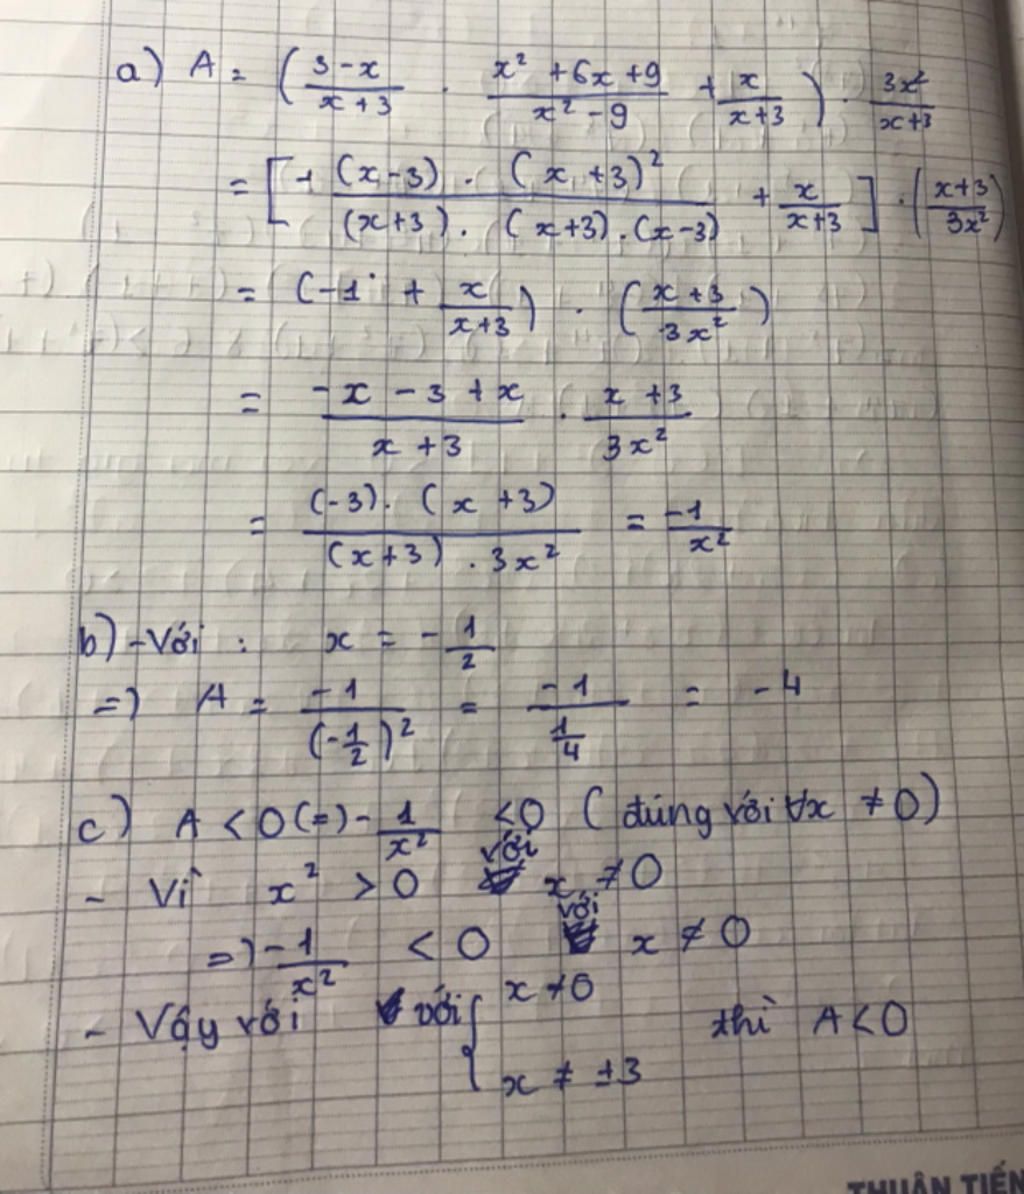 a) A = ( (3-x)/(x+3) . (x² + 6x + 9)/(x² - 9) + x/(x+3) ) . 3x²/(x+3)
= [ -1 (x-3) . (x+3)² / (x+3) . (x+3) . (x-3) + x/(x+3) ] . ( (x+3)/3x² )
= (-1 + x/(x+3)) . ( (x+3)/3x² )
= (-x - 3 + x)/(x+3) . (x+3)/3x²
= (-3) . (x+3) / (x+3) . 3x² = -1/x²
b) - Với : x = - 1/2
=) A = -1/(-1/2)² = -1/(1/4) = -4
c) A < 0 (=) - 1/x² < 0 ( đúng với ∀x ≠ 0)
- Vì x² > 0 với x ≠ 0
=) -1/x² < 0 với x ≠ 0
- Vậy với với { x ≠ 0 thì A < 0
x ≠ ±3
THUẬN TIẾN